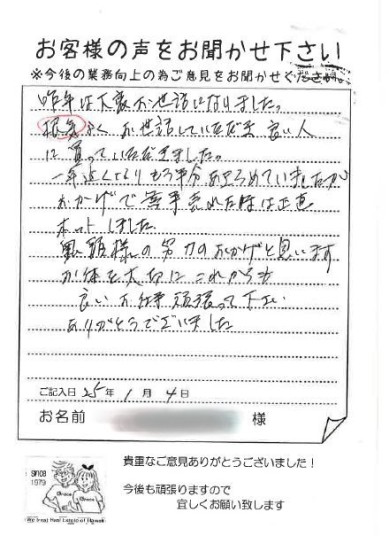 お客様の声をお聞かせ下さい
※今後の業務向上の為ご意見をお聞かせください。
昨年は大変お世話になりました。
根気よく お世話していただき 良い人
に 買っていただきました。
一年近くなり もう半分あきらめていましたが
おかげで無事売れた時は正直
ホットしました
様の努力のおかげと思います
お体を大切に これからも
良いお仕事頑張って下さい
ありがとうございました
ご記入日 25年 1月 4日
お名前 様
Since
1979
貴重なご意見ありがとうございました！
今後も頑張りますので
宜しくお願い致します